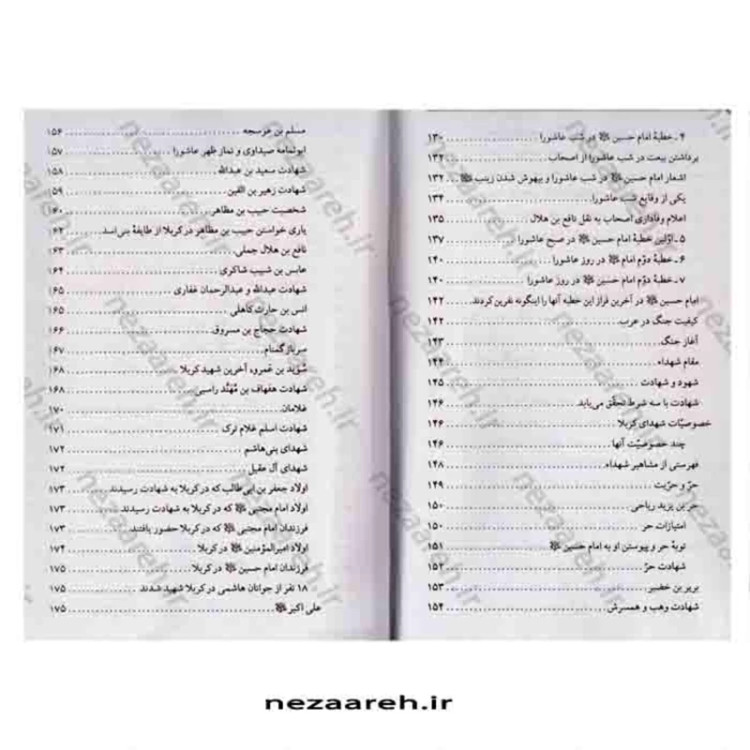 ۴ ـ خطبهٔ امام حسین ﷺ در شب عاشورا ........ ۱۳۰
برداشتن بیعت در شب عاشورا از اصحاب ........ ۱۳۲
اشعار امام حسین ﷺ در شب عاشورا و بیهوش شدن زینب ﷺ ... ۱۳۲
یکی از وقایع شب عاشورا ........ ۱۳۴
اعلام وفاداری اصحاب به نقل نافع بن هلال ........ ۱۳۵
۵ ـ اوّلین خطبهٔ امام حسین ﷺ در صبح عاشورا ........ ۱۳۷
۶ ـ خطبهٔ دوّم امام حسین ﷺ در روز عاشورا ........ ۱۴۰
۷ ـ خطبهٔ دوّم امام حسین ﷺ در روز عاشورا ........ ۱۴۰
امام حسین ﷺ در آخرین فراز این خطبه آنها را اینگونه نفرین کردند. ۱۴۲
کیفیت جنگ در عرب ........ ۱۴۲
آغاز جنگ ........ ۱۴۳
مقام شهداء ........ ۱۴۴
شهود و شهادت ........ ۱۴۵
شهادت با سه شرط تحقّق می‌یابد ........ ۱۴۶
خصوصیّات شهدای کربلا ........ ۱۴۶
چند خصوصیّت آنها ........ ۱۴۶
فهرستی از مشاهیر شهداء ........ ۱۴۸
حرّ و حرّیت ........ ۱۴۹
حر بن یزید ریاحی ........ ۱۵۰
امتیازات حر ........ ۱۵۰
توبهٔ حر و پیوستن او به امام حسین ﷺ ........ ۱۵۱
شهادت حرّ ........ ۱۵۲
بریر بن خضیر ........ ۱۵۳
شهادت وهب و همسرش ........ ۱۵۴
مسلم بن عوسجه ........ ۱۵۶
ابوثمامه صیداوی و نماز ظهر عاشورا ........ ۱۵۷
شهادت سعید بن عبدالله ........ ۱۵۸
شهادت زهیر بن القین ........ ۱۵۹
شخصیت حبیب بن مظاهر ........ ۱۶۰
یاری خواستن حبیب بن مظاهر در کربلا از طایفهٔ بنی‌اسد ... ۱۶۲
نافع بن هلال جملی ........ ۱۶۳
عابس بن شبیب شاکری ........ ۱۶۴
شهادت عبدالله و عبدالرحمان غفاری ........ ۱۶۵
انس بن حارث کاهلی ........ ۱۶۵
شهادت حجاج بن مسروق ........ ۱۶۶
سرباز گمنام ........ ۱۶۷
سُوَید بن عَمرو، آخرین شهید کربلا ........ ۱۶۸
شهادت هفهاف بن مُهَنَّد راسبی ........ ۱۶۸
غلامان ........ ۱۷۰
شهادت اسلم غلام ترک ........ ۱۷۱
شهدای بنی‌هاشم ........ ۱۷۲
شهدای آل عقیل ........ ۱۷۲
اولاد جعفر بن ابی‌طالب که در کربلا به شهادت رسیدند ... ۱۷۳
اولاد امام مجتبی ﷺ که در کربلا به شهادت رسیدند ........ ۱۷۳
فرزندان امام مجتبی ﷺ که در کربلا حضور یافتند ........ ۱۷۳
اولاد امیرالمؤمنین ﷺ در کربلا ........ ۱۷۴
فرزندان امام حسین ﷺ در کربلا ........ ۱۷۵
۱۸ نفر از جوانان هاشمی در کربلا شهید شدند ........ ۱۷۵
علی اکبر ﷺ ........ ۱۷۵
nezaareh.ir